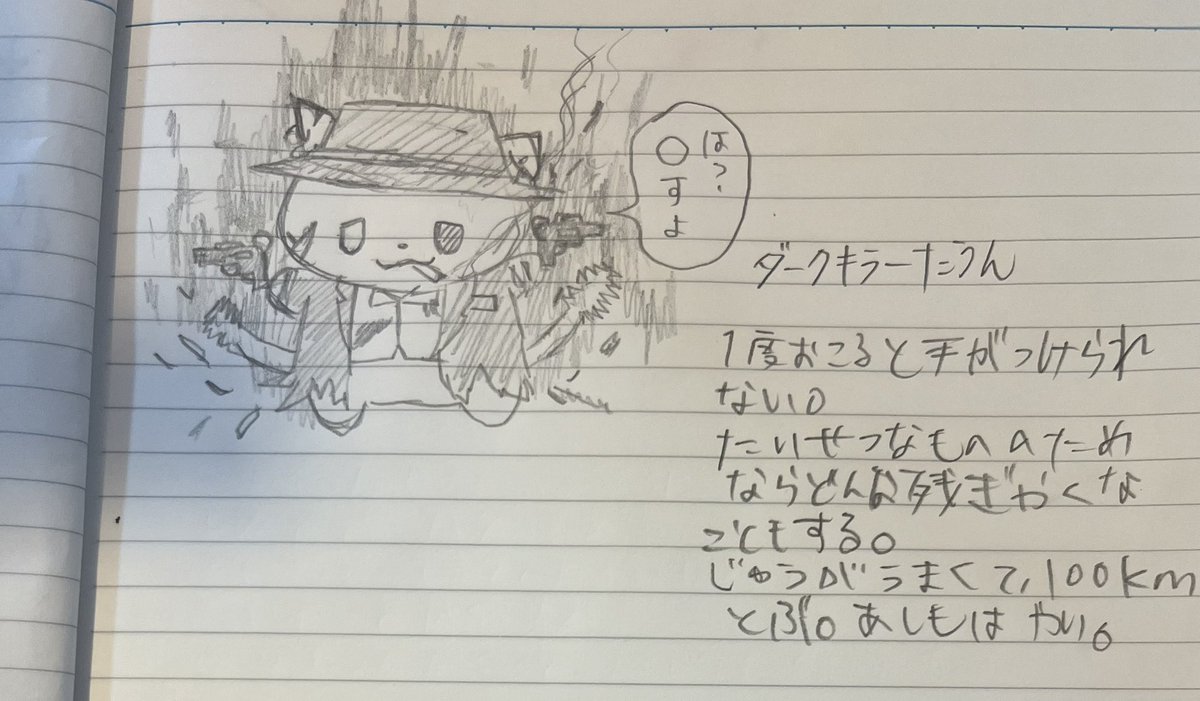 は？
○すよ
ダークキラーたうん
1度おこると手がつけられ
ない。
たいせつなもののため
ならどんな残ぎゃくな
こともする。
じゅうがうまくて、100km
とぶ。あしもはやい。